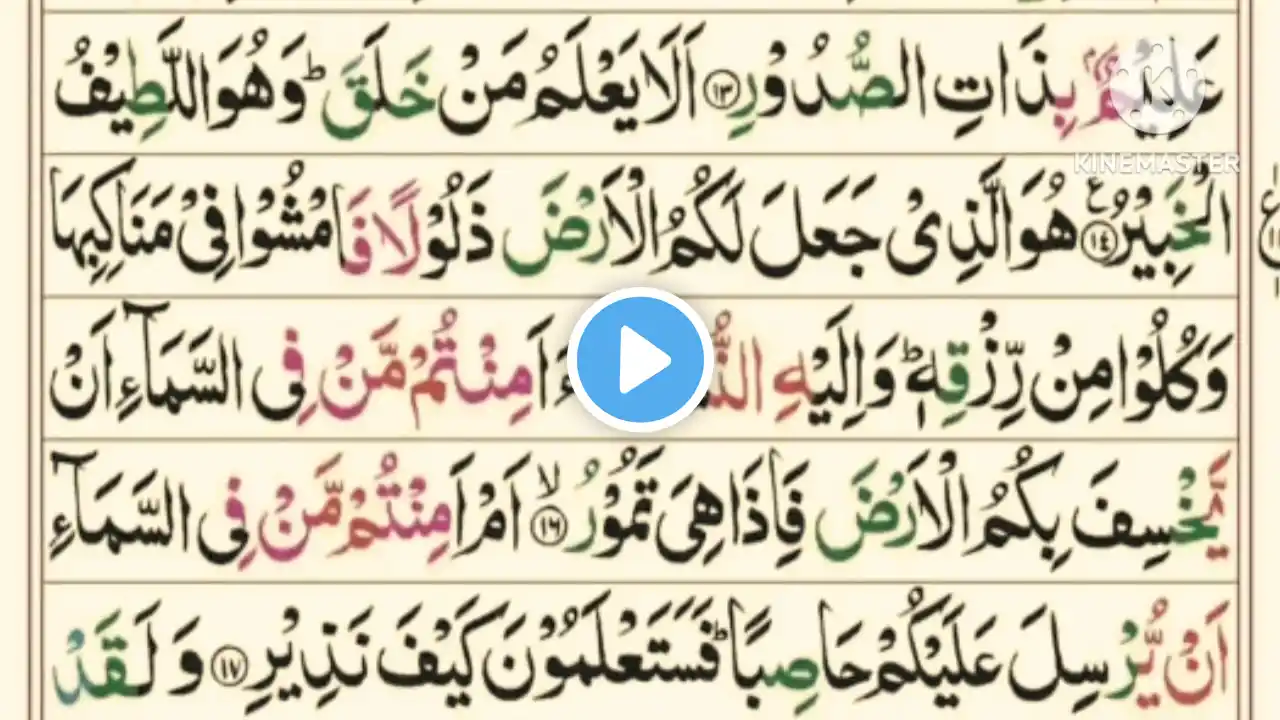 عَلِيْمٌۢ بِذَاتِ الصُّدُوْرِ ﴿۱۳﴾ اَلَا يَعْلَمُ مَنْ خَلَقَ ؕ وَهُوَ اللَّطِيْفُ
KINEMASTER
الْخَبِيْرُ ﴿۱۴﴾ هُوَ الَّذِىْ جَعَلَ لَكُمُ الْاَرْضَ ذَلُوْلًا فَامْشُوْا فِىْ مَنَاكِبِهَا
وَكُلُوْا مِنْ رِّزْقِهٖ ؕ وَاِلَيْهِ ءَاَمِنْتُمْ مَّنْ فِى السَّمَآءِ اَنْ
يَّخْسِفَ بِكُمُ الْاَرْضَ فَاِذَا هِىَ تَمُوْرُ ﴿۱۶﴾ ۙ اَمْ اَمِنْتُمْ مَّنْ فِى السَّمَآءِ
اَنْ يُّرْسِلَ عَلَيْكُمْ حَاصِبًا ؕ فَسَتَعْلَمُوْنَ كَيْفَ نَذِيْرِ ﴿۱۷﴾ وَلَقَدْ